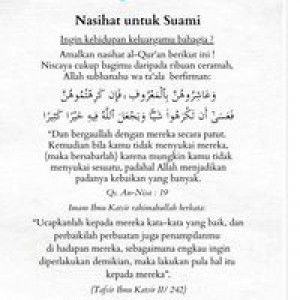 Nasihat untuk Suami
Ingin kebidupan keluargamu bahagia ?
Amalkan nasihat al-Qur'an berikut ini !
Niscaya cukup bagimu daripada ribuan ceramah,
Allah subhanahu wa ta'ala berfirman:
وَعَاشِرُوهُنَّ بِالْمَعْرُوفِ ، فَإِن كَرِهْتُمُوهُنَّ
فَعَسَىٰ أَن تَكْرَهُوا۟ شَيْـًٔا وَيَجْعَلَ ٱللَّهُ فِيهِ خَيْرًا كَثِيرًا
"Dan bergaullah dengan mereka secara patut.
Kemudian bila kamu tidak menyukai mereka,
(maka bersabarlah) karena mungkin kamu tidak
menyukai sesuatu, padahal Allah menjadikan
padanya kebaikan yang banyak.
Qs. An-Nisa : 19
Imam Ibnu Katsir rahimahullah berkata:
"Ucapkanlah kepada mereka kata-kata yang baik, dan
perbaikilah perbuatan juga penampilanmu
di hadapan mereka, sebagaimana engkau ingin
diperlakukan demikian, maka lakukan pula hal itu
kepada mereka".
(Tafsir Ibnu Katsir II/ 242)